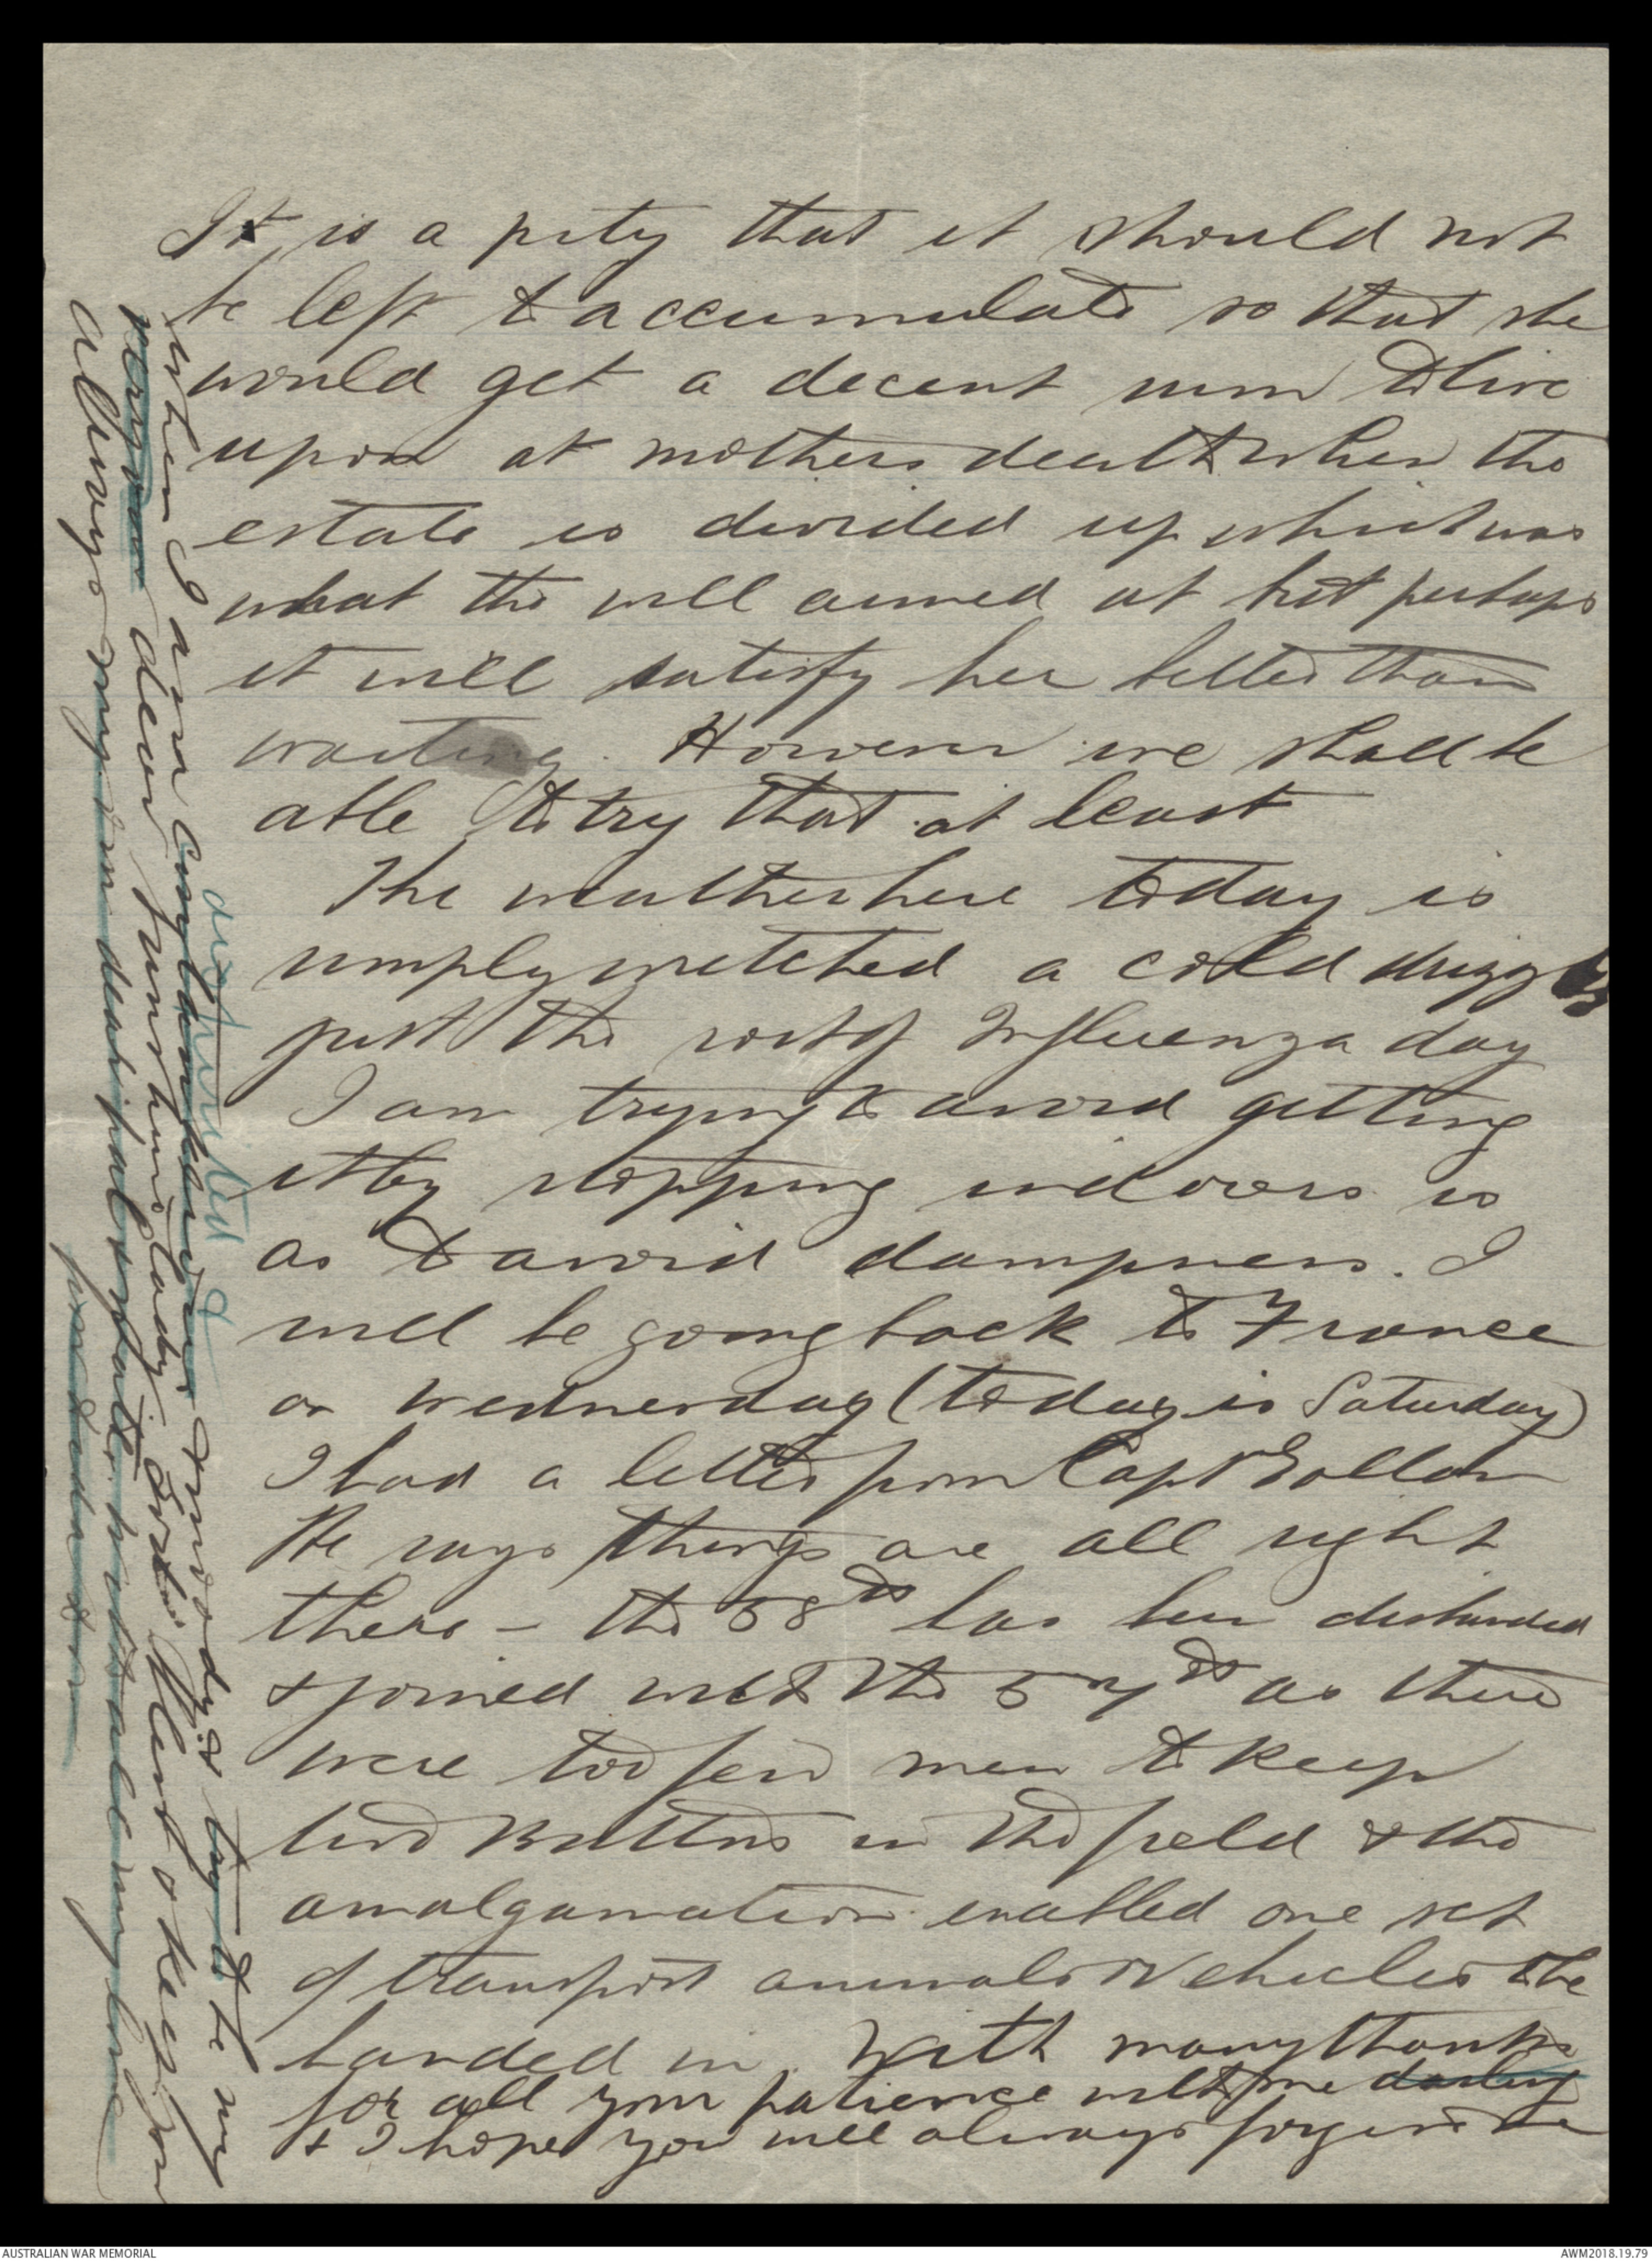 It is a pity that it should not
be left to accumulate so that she
would get a decent sum to live
upon at mothers death when the
estate is divided up which was
what the will aimed at but perhaps
it will satisfy her better than
waiting. However we shall be
able to try that at least
The weather here today is
simply wretched a cold drizzly
just the sort of Influenza day
I am trying to avoid getting
it by stopping indoors so
as to avoid dampness. I
will be going back to France
on Wednesday (today is Saturday)
I had a letter from Capt
He says things are all right
there - the 58th has been disbanded
& joined with the 57th as there
were too few men to keep
two Battns in the field & the
amalgamation enabled one set
of transport animals & vehicles to be
handed in. With many thanks
for all your patience with me darling
& I hope you will always forgive me
when I am & try to be my
dispirited &
dear precious lady. God bless & keep you
always my own dear